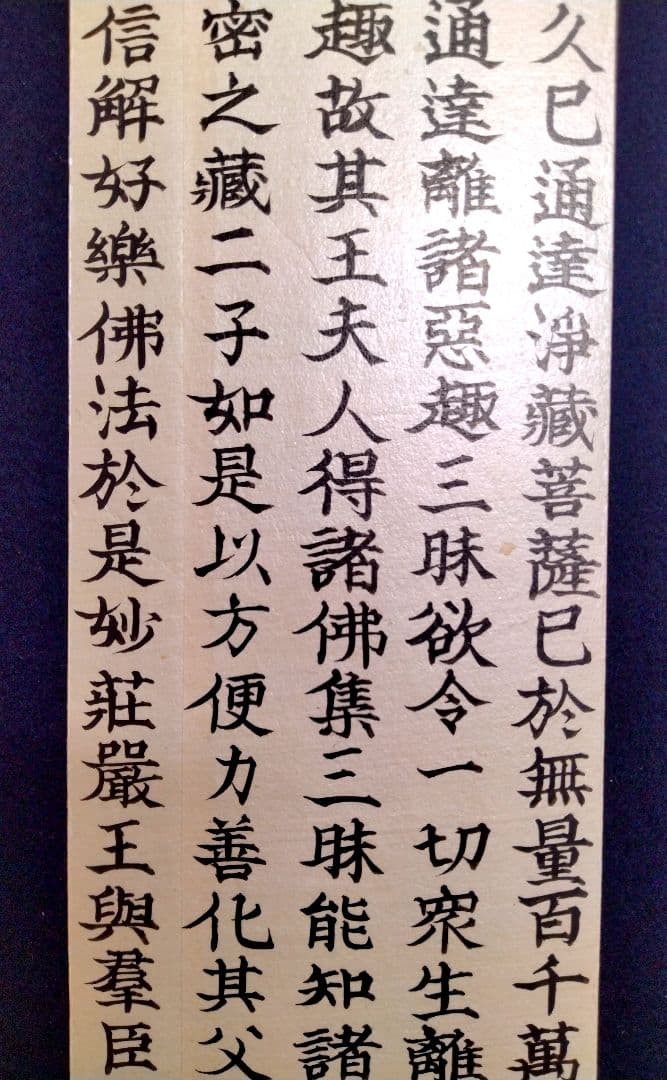 久已通達淨藏菩薩已於無量百千萬
通達離諸惡趣三昧欲令一切眾生離
趣故其王夫人得諸佛集三昧能知諸
密之藏二子如是以方便力善化其父
信解好樂佛法於是妙莊嚴王與羣臣